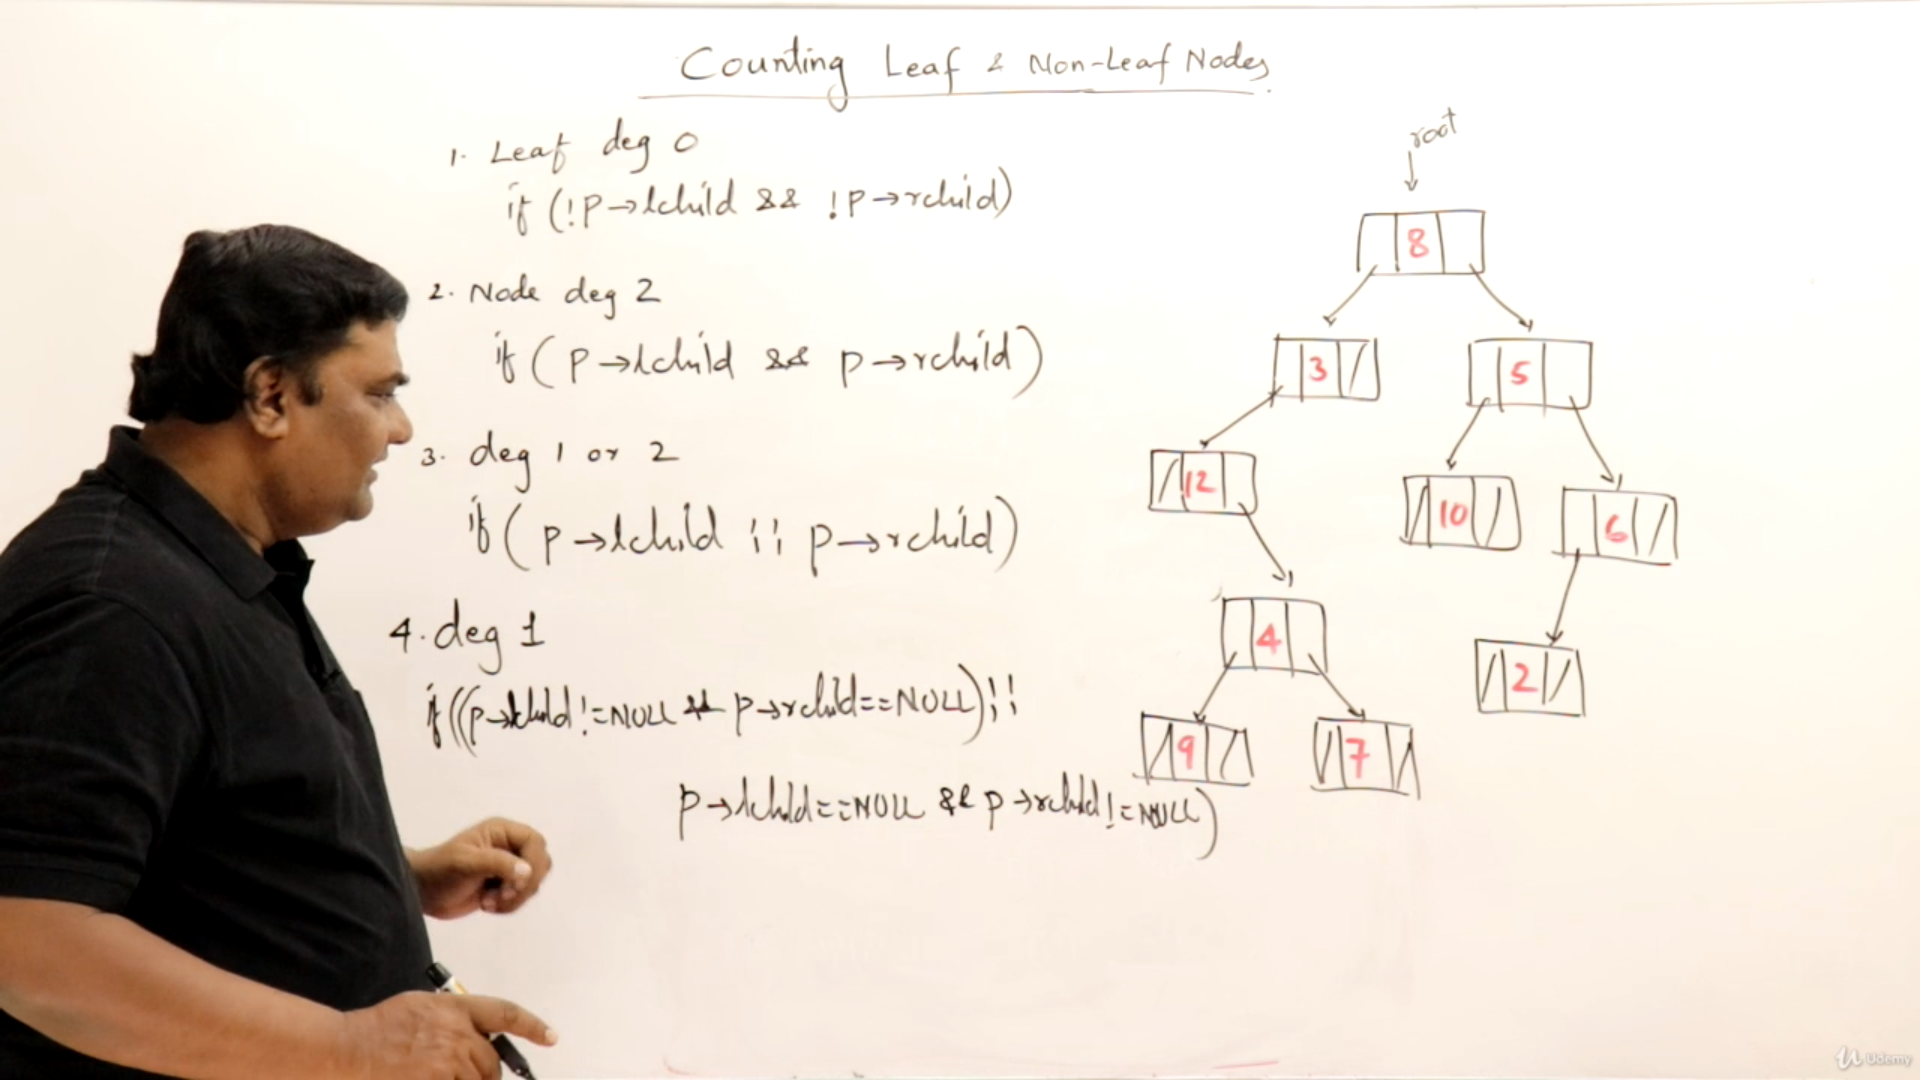 Counting Leaf & Non-Leaf Nodes
1. Leaf deg 0
if (!p→lchild && !p→rchild)
2. Node deg 2
if (p→lchild && p→rchild)
3. deg 1 or 2
if (p→lchild || p→rchild)
4. deg 1
if ((p→lchild!=NULL && p→rchild==NULL)||
p→lchild==NULL && p→rchild!=NULL)
root
8
3
5
12
10
6
4
2
9
7
Udemy